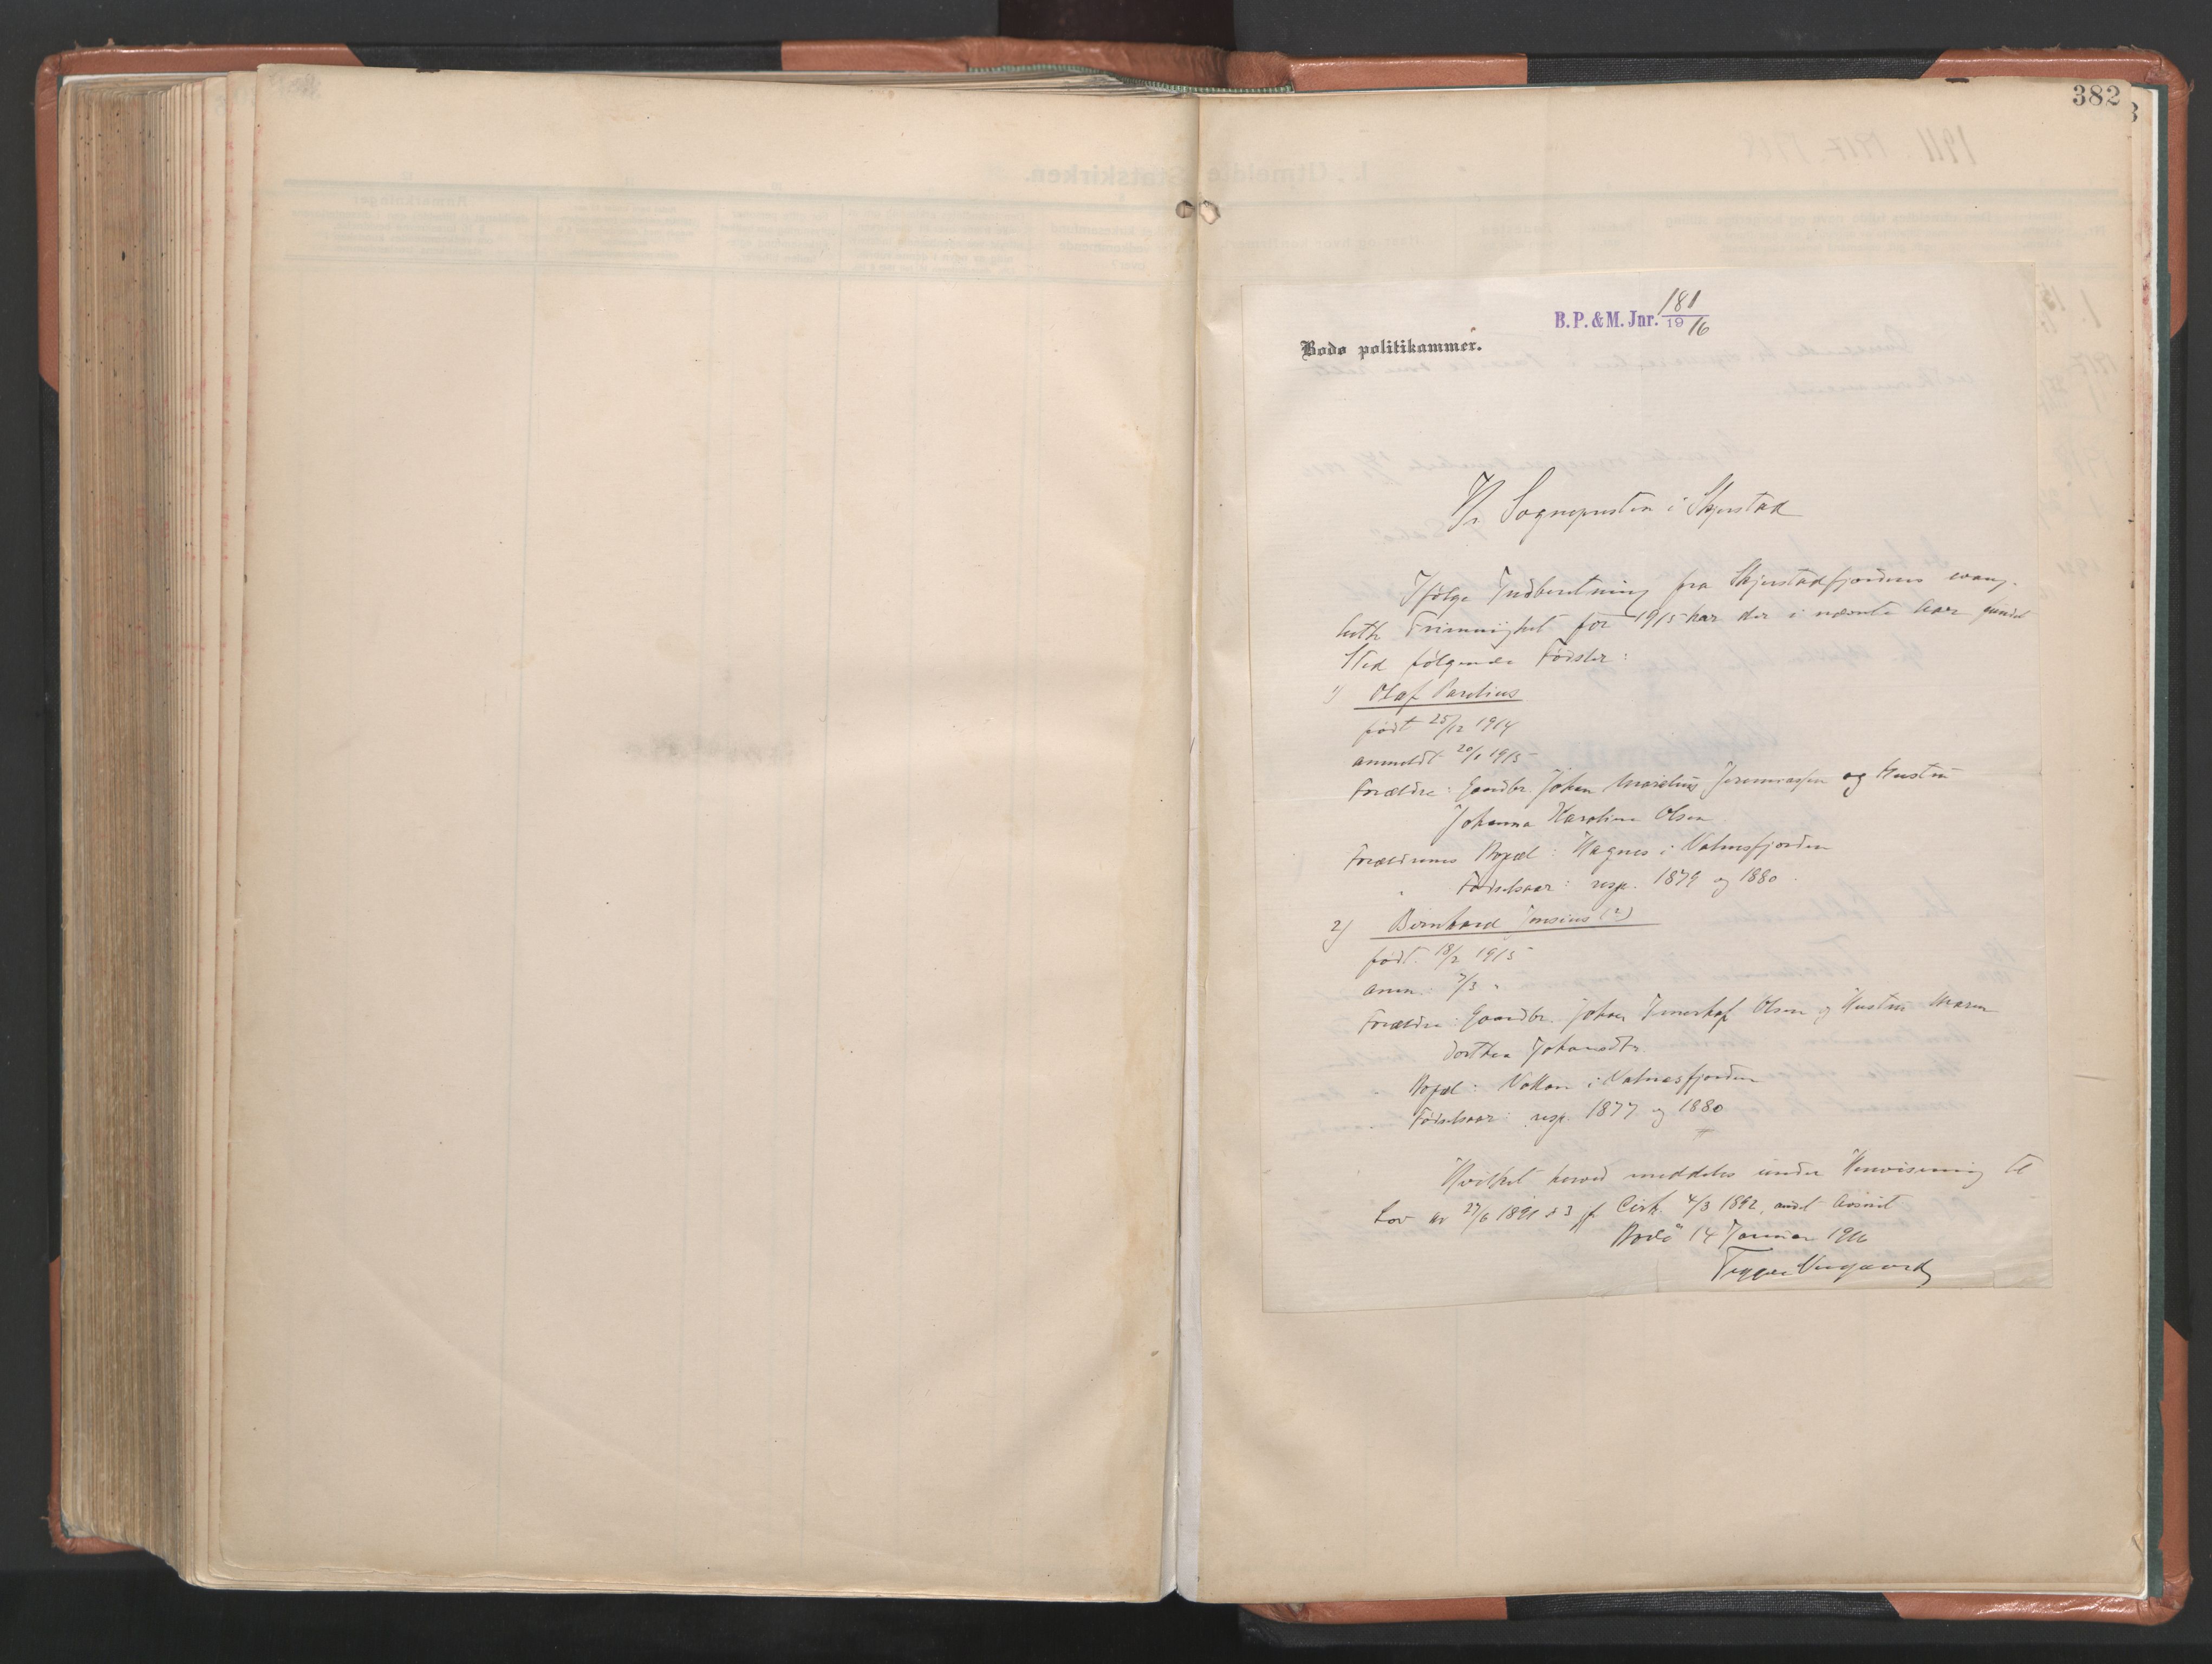 382
B. P. & M. Jnr. 181/1916
Bodø politikammer.
Hr. Sognepresten i Skjerstad
Ifølge Indberetning fra Skjerstadfjordens evang.
luth Frimenighet for 1915 har der i nævnte Aar fundet
Sted følgende Fødsler:
1) Olaf Parelius
født 25/12 1914
anmeldt 20/1 1915
Forældre: Gaardbr. Johan Marelius Jeremiassen og Hustru
Johanna Karoline Olsen
Forældrenes Bopæl: Hagnes i Valnesfjorden
" Fødselsaar: resp. 1879 og 1880.
2) Bernhard Jensius (?)
født 18/2 1915
anm.: 7/3 "
Forældre: Gaardbr. Johan Olsen og Hustru Maren
Dorthea Johansdtr.
Bopæl: i Valnesfjorden
" Fødselsaar: resp. 1877 og 1880
Hvilket herved meddeles under Henvisning til
Lov av 27/6 1891 § 3 jf. Cirk. 4/3 1892, andet Avsnit
Bodø 14 Januar 1916